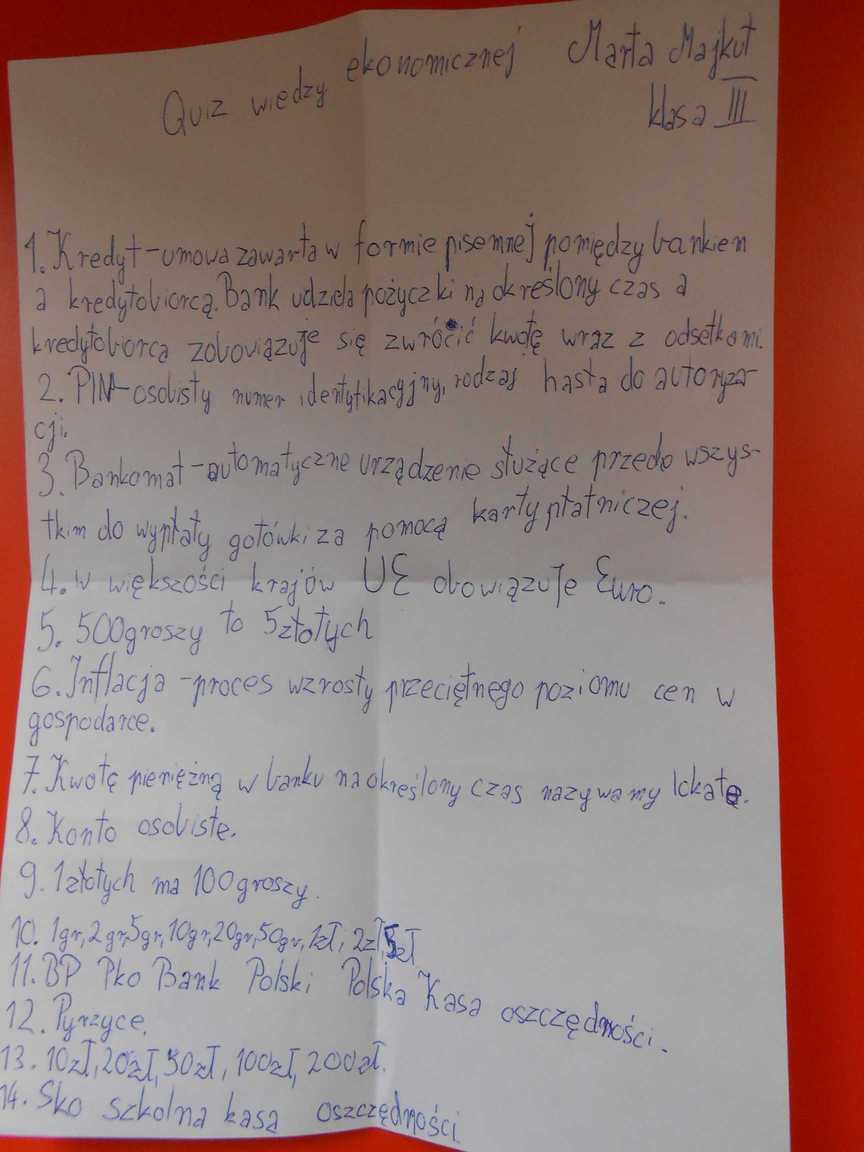 Quiz wiedzy ekonomicznej Marta Majkut
klasa III
1. Kredyt - umowa zawarta w formie pisemnej pomiędzy bankiem
a kredytobiorcą. Bank udziela pożyczki na określony czas a
kredytobiorca zobowiązuje się zwrócić kwotę wraz z odsetkami.
2. PIN - osobisty numer identyfikacyjny, rodzaj hasła do autoryza-
cji.
3. Bankomat - automatyczne urządzenie służące przede wszys-
tkim do wypłaty gotówki za pomocą karty płatniczej.
4. W większości krajów UE obowiązuje Euro.
5. 500 groszy to 5 złotych
6. Inflacja - proces wzrosty przeciętnego poziomu cen w
gospodarce.
7. Kwotę pieniężną w banku na określony czas nazywamy lokatę.
8. Konto osobiste.
9. 1 złotych ma 100 groszy.
10. 1gr, 2gr, 5gr, 10gr, 20gr, 50gr, 1zł, 2zł, 5zł
11. BP Pko Bank Polski Polska Kasa oszczędności.
12. Pyrzyce.
13. 10zł, 20zł, 50zł, 100zł, 200zł.
14. Sko szkolna kasa oszczędności